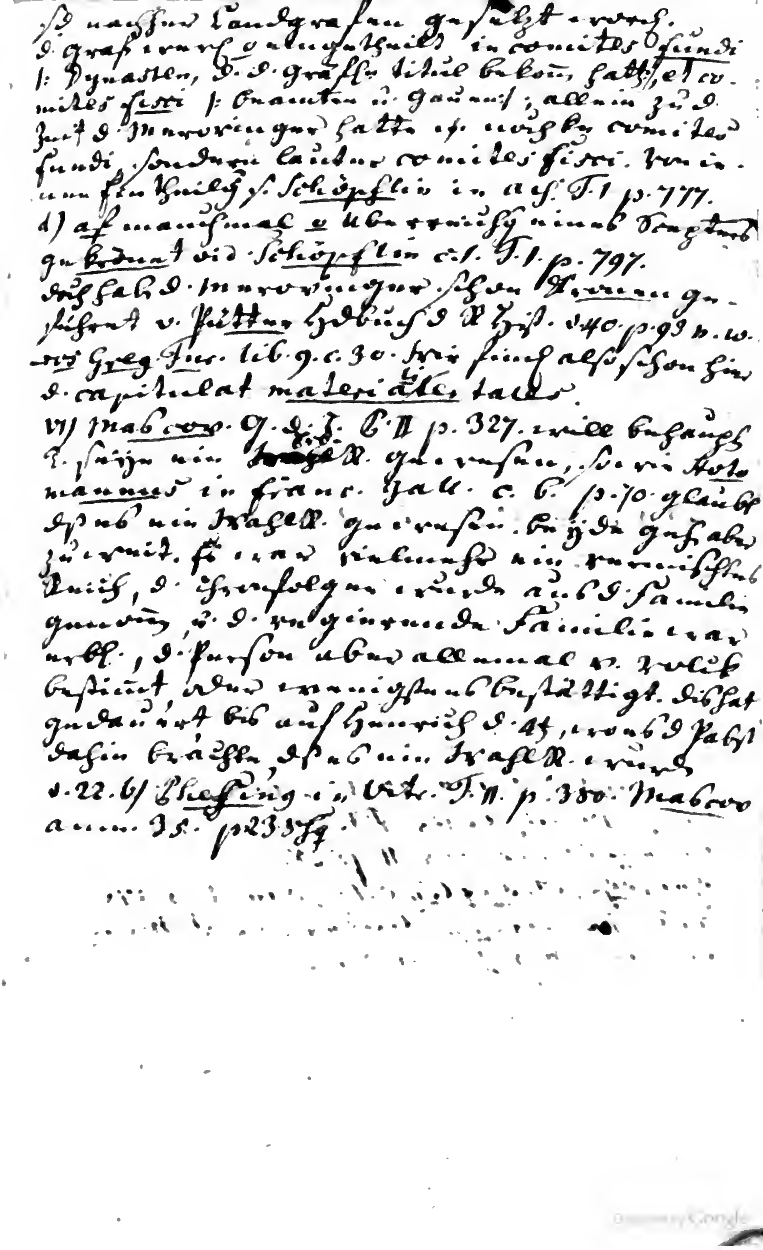 sd nachher Landgrafen gesetzt word.
d. Graf werd eingetheilt in comites fundi
/: Dynasten, d. d. Gräfln titul bekom̄ hatt:/, et co-
mites fisci /: beamten u. Gauen:/, allein zu d.
Zeit d. Merovinger hatte m. noch ke comites
fundi, sondern lauter comites fisci. von je-
nen Eintheilg s. Schöpflin in als. T. I p. 777.
d) auf manchmal Überreichg eines Scepters
gekrönet vid. Schöpflin c. l. T. I. p. 797.
doch hab d. Merovinger schon Kronen ge-
führet v. Pütter Hdbuch d R Hist. §40. p. 93 n. w.
Greg. Tur. lib. 9. c. 30. wir find also schon hier
d. capitulat materialiter tales.
VI) Mascov. G. d. T. B. II p. 327. will behaupt
E. seye ein Erb R. gewesen, sowie Hoto
mannus in franc. Gall. c. 6. p. 70. glaubt
dß es ein WahlR. gewesen. beyde geh aber
zu weit. Es war vielmehr ein vermischtes
Reich, d. Thronfolger wurde aus d. Familie
genom̄, u. d. regierende Familie war
erbl., d. Person aber allemal v. Volck
bestim̄t, oder wenigstens bestättigt. dis hat
gedauert bis auf Henrich d. 4t, wo es d Pabst
dahin brachte, dß es ein WahlR. wurd
v. 22. b) in Vitr. T. II. p. 380. Mascov
ann. 35. p 233 sq.